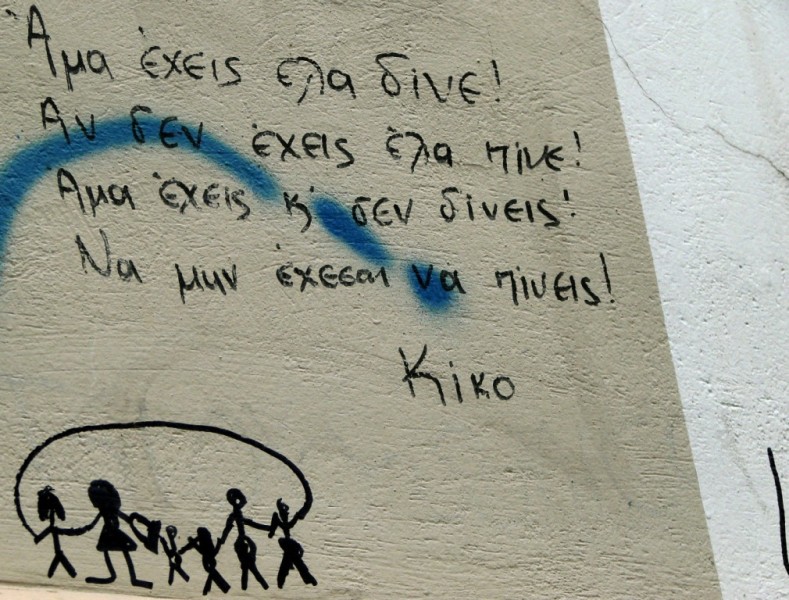 Άμα έχεις έλα δίνε!
Αν δεν έχεις έλα πίνε!
Άμα έχεις κ' δεν δίνεις!
Να μην έχεσαι να πίνεις!
Κίκο